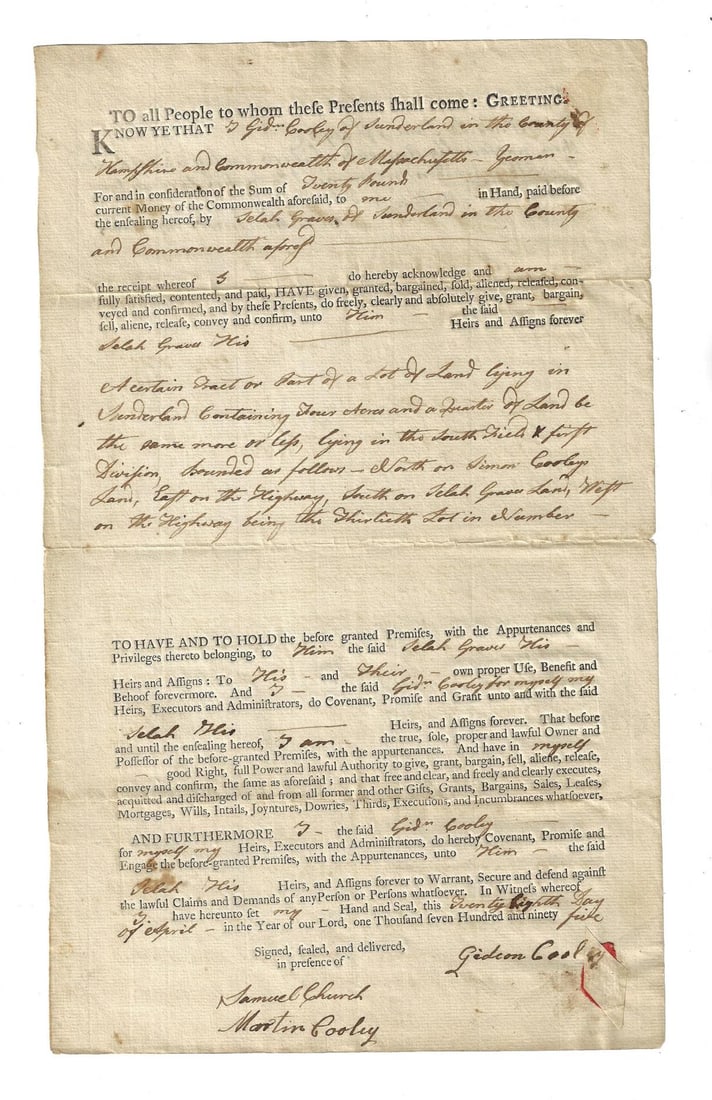 TO all People to whom theſe Preſents ſhall come: GREETING.
KNOW YE THAT I Gidn Cooley of Sunderland in the County of
Hampshire and Commonwealth of Massachusetts – Yeoman –
For and in conſideration of the Sum of Twenty Pound
current Money of the Commonwealth aforeſaid, to me in Hand, paid before
the enſealing hereof, by Selah Graves of Sunderland in the County
and Commonwealth aforesd
the receipt whereof I do hereby acknowledge and am –
fully ſatisfied, contented, and paid, HAVE given, granted, bargained, ſold, aliened, releaſed, con-
veyed and confirmed, and by theſe Preſents, do freely, clearly and abſolutely give, grant, bargain,
ſell, aliene, releaſe, convey and confirm, unto Him – the ſaid
Selah Graves His Heirs and Aſſigns forever
A certain Tract or Part of a Lot of Land lying in
Sunderland Containing Four Acres and a Quarter of Land be
the same more or leſs, lying in the South Field & first
Division, Bounded as follows – North on Simon Cooleys
Land, Eaſt on the Highway, South on Selah Graves Land, Weſt
on the Highway being the Thirtieth Lot in Number –
TO HAVE AND TO HOLD the before granted Premiſes, with the Appurtenances and
Privileges thereto belonging, to Him the ſaid Selah Graves His –
Heirs and Aſſigns: To His – and Their – own proper Uſe, Benefit and
Behoof forevermore. And I – the ſaid Gidn Cooley for myself my
Heirs, Executors and Adminiſtrators, do Covenant, Promiſe and Grant unto and with the ſaid
Selah His Heirs, and Aſſigns forever. That before
and until the enſealing hereof, I am – the true, ſole, proper and lawful Owner and
Poſſeſſor of the before-granted Premiſes, with the appurtenances. And have in myself
– good Right, full Power and lawful Authority to give, grant, bargain, ſell, aliene, releaſe,
convey and confirm, the ſame as aforeſaid; and that free and clear, and freely and clearly executes,
acquitted and diſcharged of and from all former and other Gifts, Grants, Bargains, Sales, Leaſes,
Mortgages, Wills, Intails, Joyntures, Dowries, Thirds, Executions, and Incumbrances whatſoever.
AND FURTHERMORE I – the ſaid Gidn Cooley
for myself my Heirs, Executors and Adminiſtrators, do hereby Covenant, Promiſe and
Engage the before-granted Premiſes, with the Appurtenances, unto Him – the ſaid
Selah His Heirs, and Aſſigns forever to Warrant, Secure and defend againſt
the lawful Claims and Demands of any Perſon or Perſons whatſoever. In Witneſs whereof
I have hereunto ſet my – Hand and Seal, this Twenty Eighth Day
of April – in the Year of our Lord, one Thouſand ſeven Hundred and ninety five
Signed, ſealed, and delivered,
in preſence of
Gideon Cooley
Samuel Church
Martin Cooley